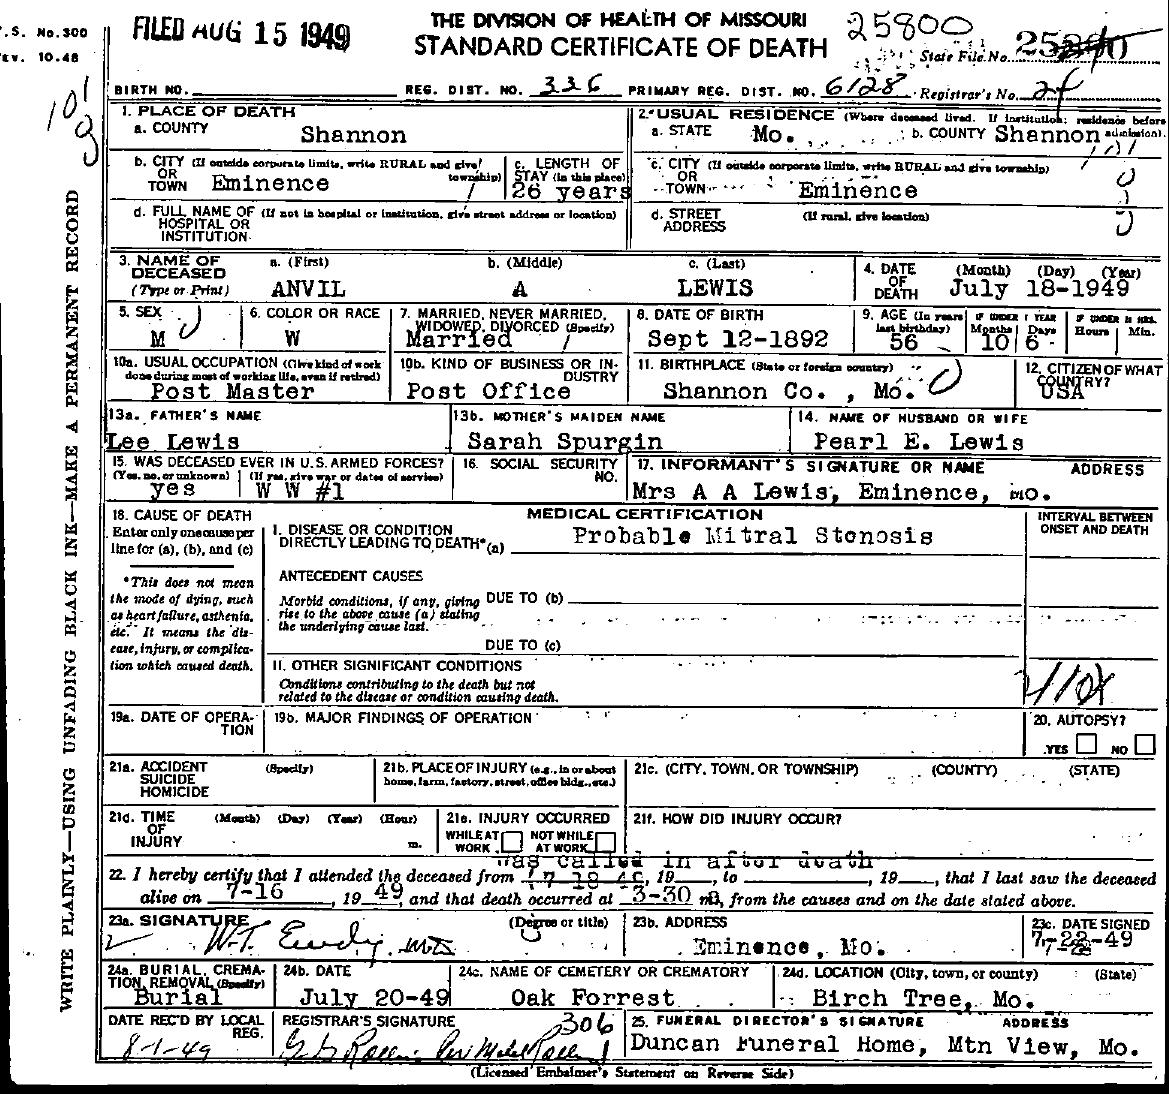 V.S. No.300
REV. 10.48
FILED AUG 15 1949
THE DIVISION OF HEALTH OF MISSOURI
STANDARD CERTIFICATE OF DEATH
25800
State File No.
BIRTH NO. REG. DIST. NO. 336 PRIMARY REG. DIST. NO. 6128 Registrar's No. 24
1. PLACE OF DEATH
a. COUNTY Shannon
2. USUAL RESIDENCE (Where deceased lived. If institution: residence before admission).
a. STATE Mo. b. COUNTY Shannon
b. CITY (If outside corporate limits, write RURAL and give township)
OR
TOWN Eminence
c. LENGTH OF
STAY (in this place)
26 years
c. CITY (If outside corporate limits, write RURAL and give township)
OR
TOWN Eminence
d. FULL NAME OF (If not in hospital or institution, give street address or location)
HOSPITAL OR
INSTITUTION
d. STREET (If rural, give location)
ADDRESS
3. NAME OF
DECEASED
(Type or Print)
a. (First) b. (Middle) c. (Last)
ANVIL A LEWIS
4. DATE
OF
DEATH
(Month) (Day) (Year)
July 18-1949
5. SEX
M
6. COLOR OR RACE
W
7. MARRIED, NEVER MARRIED,
WIDOWED, DIVORCED (Specify)
Married
8. DATE OF BIRTH
Sept 12-1892
9. AGE (In years
last birthday)
56
IF UNDER 1 YEAR
Months Days
10 6
IF UNDER 24 HRS.
Hours Min.
10a. USUAL OCCUPATION (Give kind of work
done during most of working life, even if retired)
Post Master
10b. KIND OF BUSINESS OR IN-
DUSTRY
Post Office
11. BIRTHPLACE (State or foreign country)
Shannon Co., Mo.
12. CITIZEN OF WHAT
COUNTRY?
USA
13a. FATHER'S NAME
Lee Lewis
13b. MOTHER'S MAIDEN NAME
Sarah Spurgin
14. NAME OF HUSBAND OR WIFE
Pearl E. Lewis
15. WAS DECEASED EVER IN U.S. ARMED FORCES?
(Yes, no, or unknown) (If yes, give war or dates of service)
yes W W #1
16. SOCIAL SECURITY
NO.
17. INFORMANT'S SIGNATURE OR NAME ADDRESS
Mrs A A Lewis, Eminence, Mo.
18. CAUSE OF DEATH
Enter only one cause per
line for (a), (b), and (c)
*This does not mean
the mode of dying, such
as heart failure, asthenia,
etc. It means the dis-
ease, injury, or complica-
tion which caused death.
MEDICAL CERTIFICATION
INTERVAL BETWEEN
ONSET AND DEATH
I. DISEASE OR CONDITION
DIRECTLY LEADING TO DEATH*(a) Probable Mitral Stonosis
ANTECEDENT CAUSES
Morbid conditions, if any, giving
rise to the above cause (a) stating
the underlying cause last.
DUE TO (b)
DUE TO (c)
II. OTHER SIGNIFICANT CONDITIONS
Conditions contributing to the death but not
related to the disease or condition causing death.
19a. DATE OF OPERA-
TION
19b. MAJOR FINDINGS OF OPERATION
20. AUTOPSY?
YES NO
21a. ACCIDENT (Specify)
SUICIDE
HOMICIDE
21b. PLACE OF INJURY (e.g., in or about
home, farm, factory, street, office bldg., etc.)
21c. (CITY, TOWN, OR TOWNSHIP) (COUNTY) (STATE)
21d. TIME (Month) (Day) (Year) (Hour)
OF
INJURY m.
21e. INJURY OCCURRED
WHILE AT WORK NOT WHILE AT WORK
21f. HOW DID INJURY OCCUR?
was called in after death
22. I hereby certify that I attended the deceased from , 19 , to , 19 , that I last saw the deceased
alive on 7-16 , 19 49, and that death occurred at 3-30 m., from the causes and on the date stated above.
23a. SIGNATURE (Degree or title)
W.T. Eudy, MD
23b. ADDRESS
Eminence, Mo.
23c. DATE SIGNED
7-22-49
24a. BURIAL, CREMA-
TION, REMOVAL (Specify)
Burial
24b. DATE
July 20-49
24c. NAME OF CEMETERY OR CREMATORY
Oak Forrest
24d. LOCATION (City, town, or county) (State)
Birch Tree, Mo.
DATE REC'D BY LOCAL
REG.
8-1-49
REGISTRAR'S SIGNATURE
306
25. FUNERAL DIRECTOR'S SIGNATURE ADDRESS
Duncan Funeral Home, Mtn View, Mo.
(Licensed Embalmer's Statement on Reverse Side)
WRITE PLAINLY—USING UNFADING BLACK INK—MAKE A PERMANENT RECORD